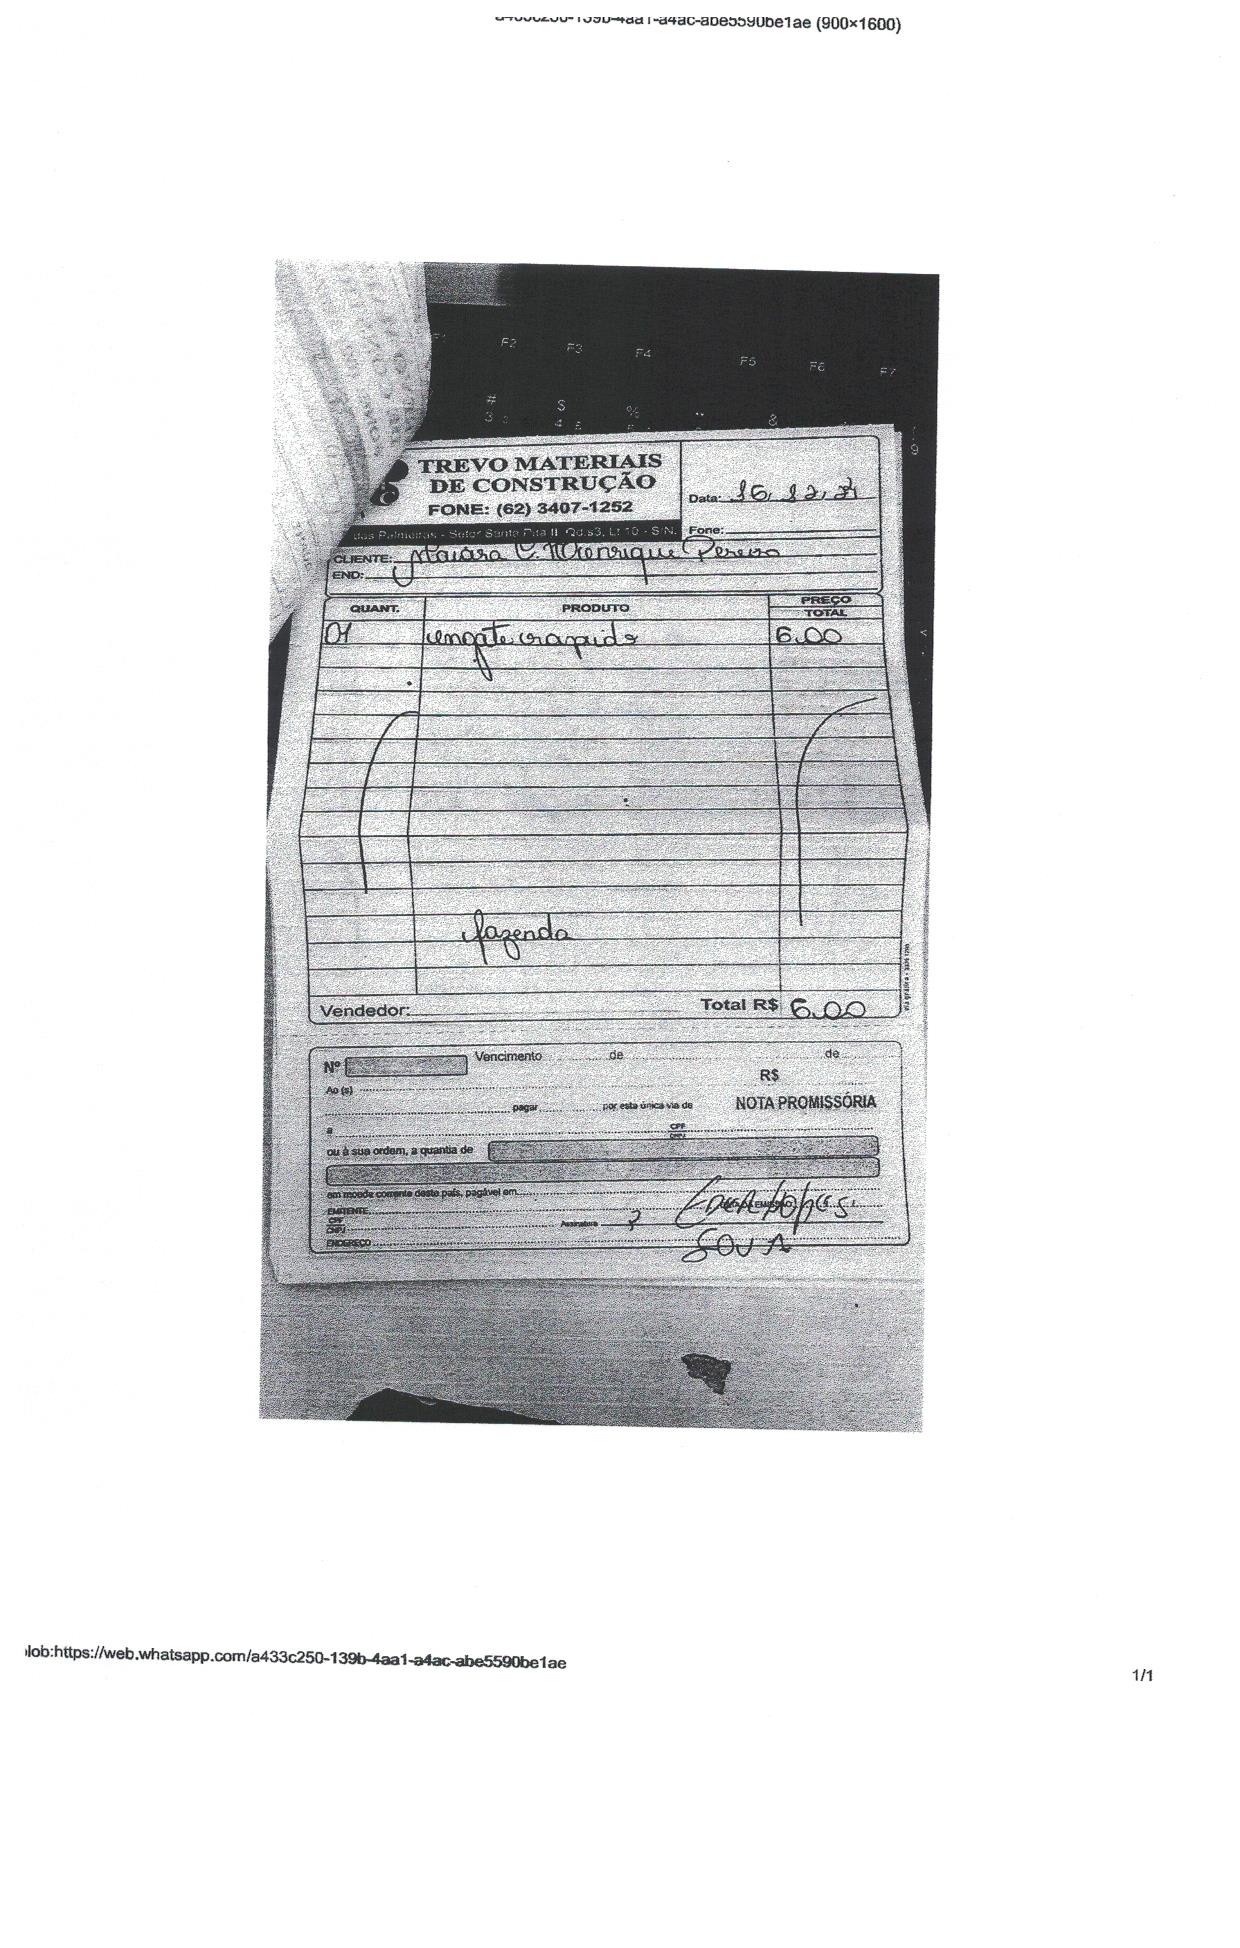 a433c250-139b-4aa1-a4ac-abe5590be1ae (900×1600)
F2 F3 F4 F5 F6 F7
# $ % " &
3 4
TREVO MATERIAIS
DE CONSTRUÇÃO
FONE: (62) 3407-1252
das Palmeiras - Setor Santa Rita II Qd.s3, Lt 10 - S/N.
Data: 16, 12,
Fone:
CLIENTE: Maiara C. Henrique Pereira
END:
QUANT. PRODUTO PREÇO TOTAL
01 engate rapido 6.00
fazenda
Vendedor: Total R$ 6.00
Nº Vencimento de de
R$
Ao (s)
pagar por esta única via de NOTA PROMISSÓRIA
a CPF
CNPJ
ou à sua ordem, a quantia de
em moeda corrente deste país, pagável em
EMITENTE
CPF
CNPJ
Assinatura
ENDEREÇO
lob:https://web.whatsapp.com/a433c250-139b-4aa1-a4ac-abe5590be1ae
1/1